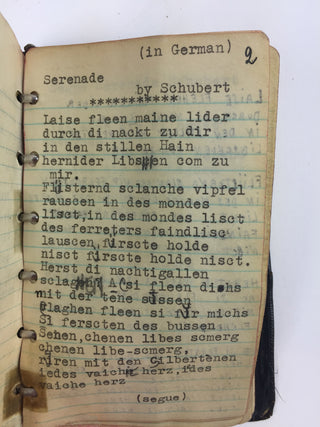 (in German)
2
Serenade
by Schubert
***********
Laise fleen maine lider
durch di nackt zu dir
in den stillen Hain
hernider Libs en com zu
mir.
Flisternd sclanche vipfel
rauscen in des mondes
lisct,in des mondes lisct
des ferreters faindlisc
lauscen,firscte holde
nisct firscte holde nisct.
Herst di nachtigallen
sclaghen A( si fleen dichs
mit der tene sussen
flaghen fleen si fir michs
Si ferscten des bussen
Sehen,chenen libes scmerg
chenen libe-scmerg,
riren mit den cilbertenen
iedes vaiche herz,ides
vaiche herz
(segue)